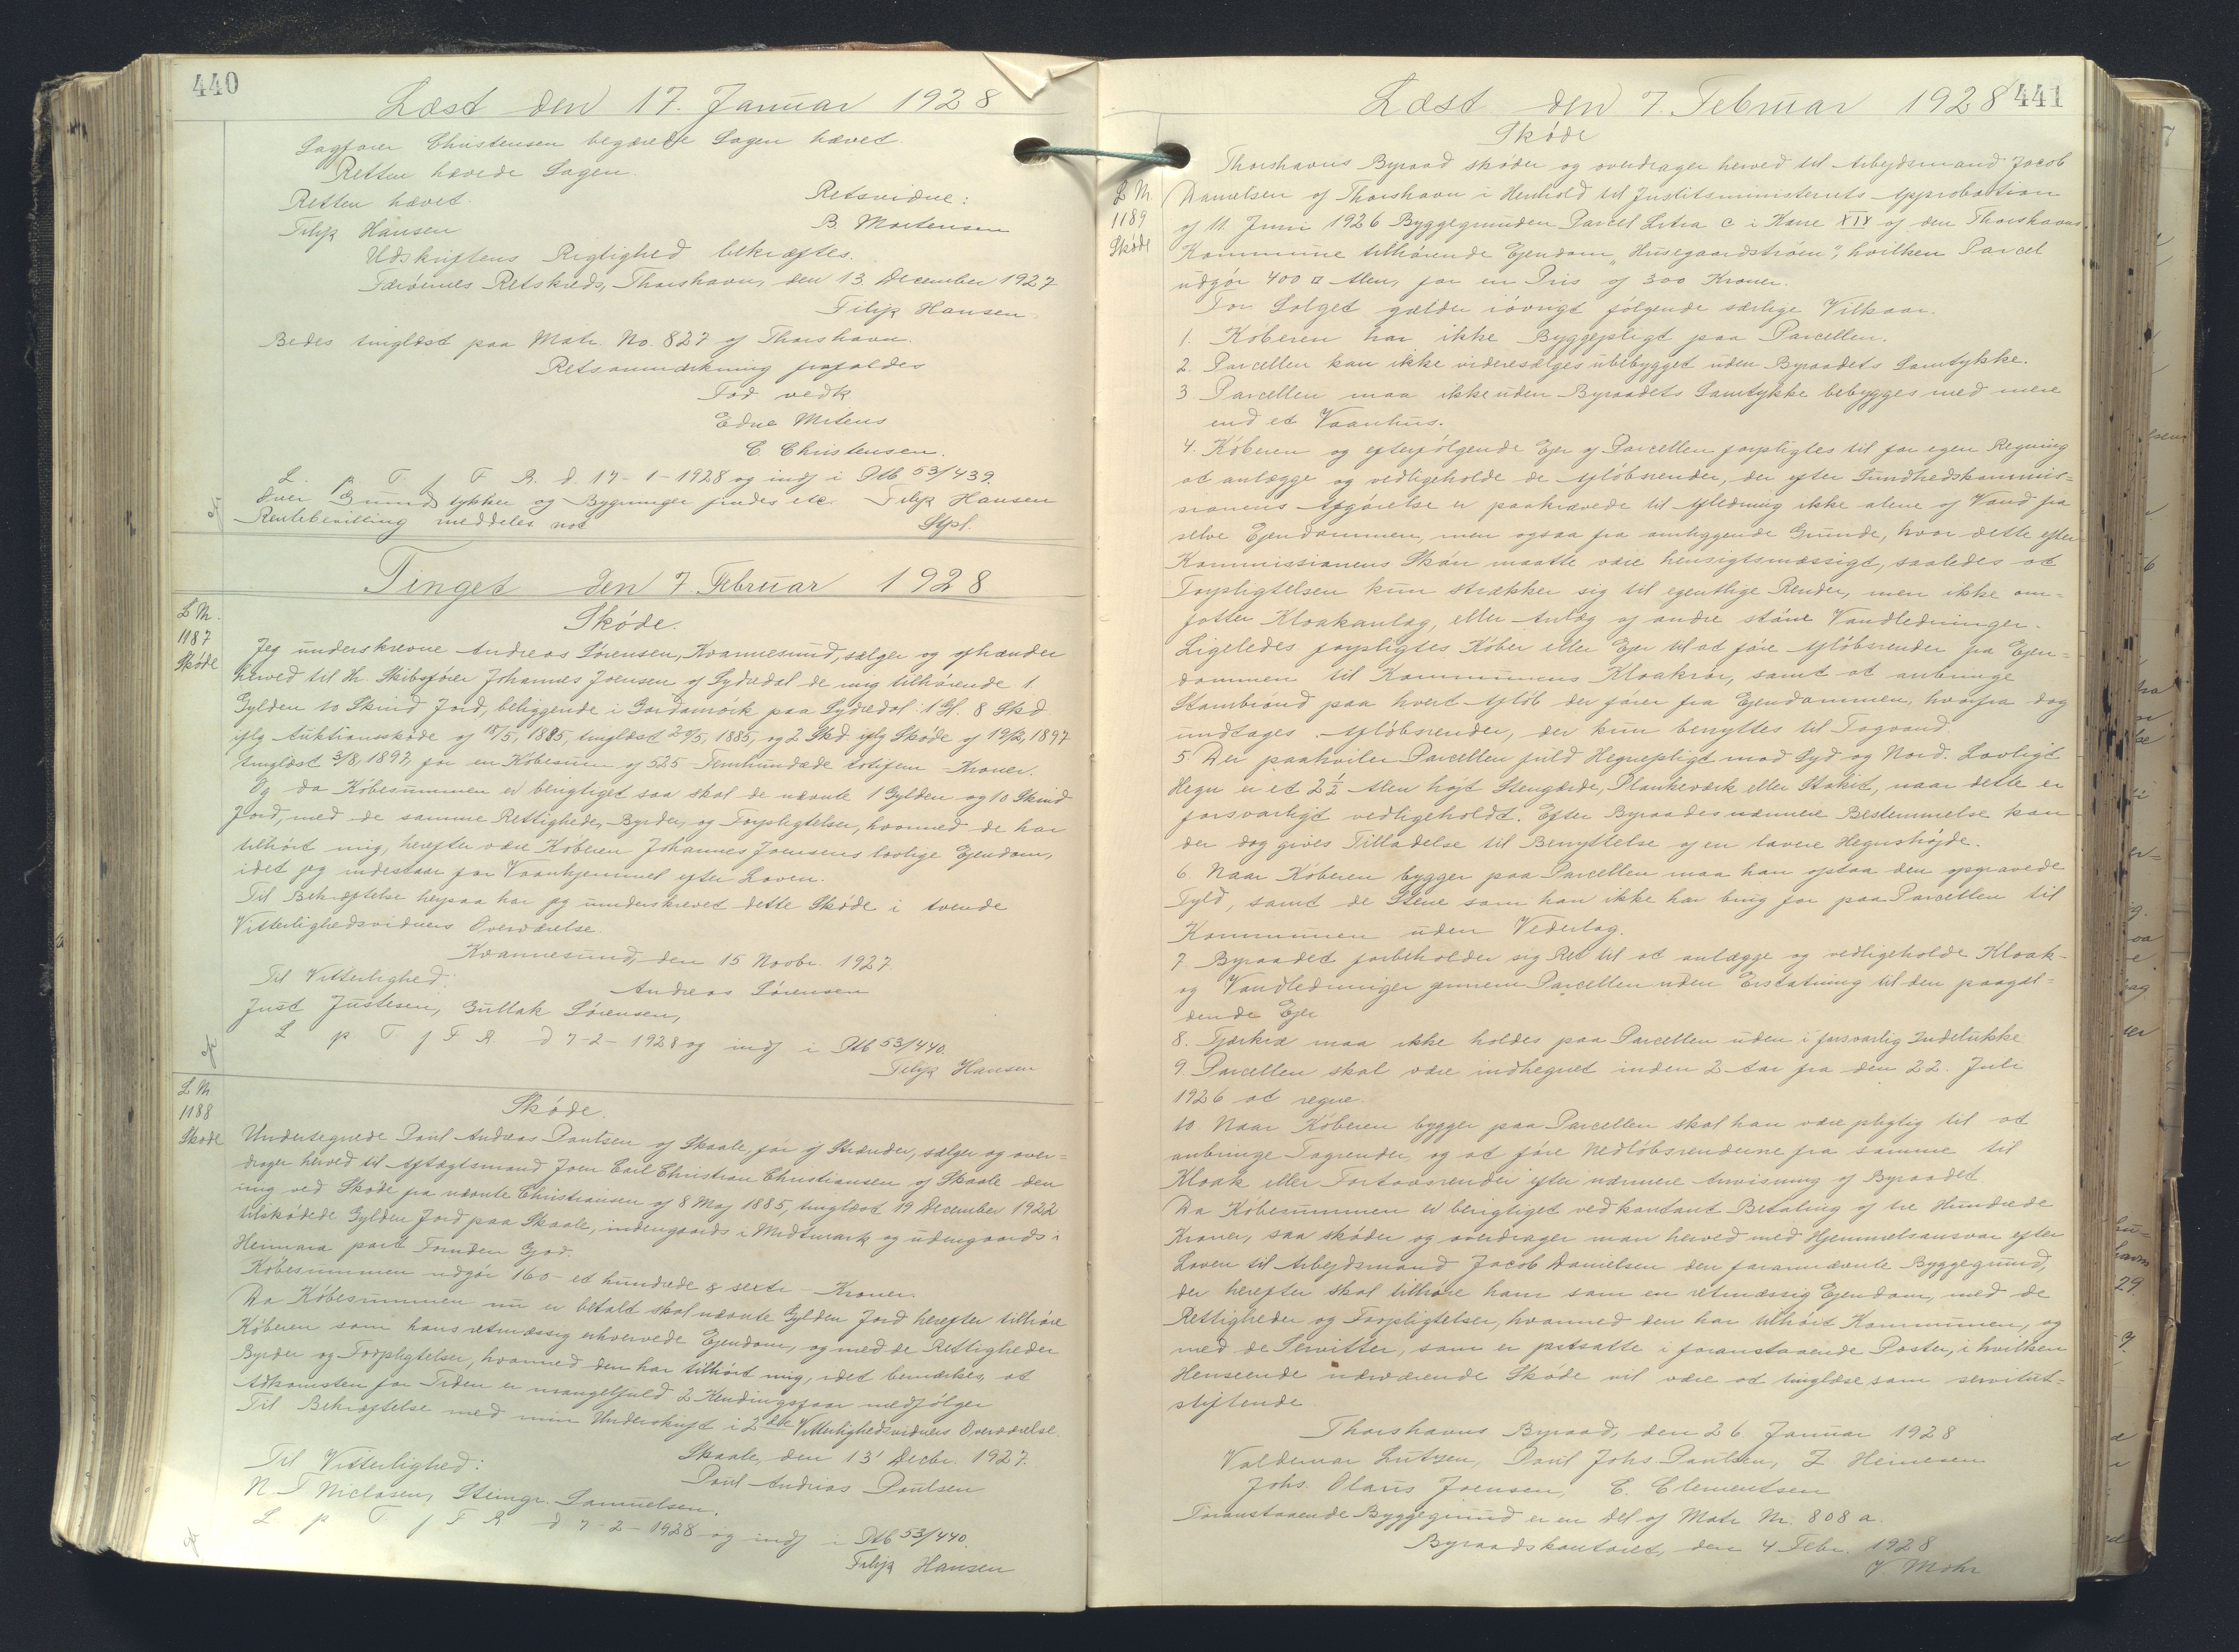 440
Læst den 17. Januar 1928
Sagfører Christensen begærede Sagen hævet.
Retten hævede Sagen
Retten hævet.
Retsvidne:
Filip Hansen
B. Mortensen
Udskriftens Rigtighed bekræftes.
Færøernes Retskreds, Thorshavn, den 13. December 1927
Filip Hansen
Bedes tinglæst paa Matr. No. 827 af Thorshavn.
Retsanmærkning frafaldes
Fod vedk
Edne Mitens
C. Christensen.
L. p. T. f F. R. d. 17-1-1928 og indf i Ptb 53/439.
Over Grundstykker og Bygninger findes etc. Filip Hansen
Rentebevilling meddeles not
Stpl.
Tinget den 7. Februar 1928
L Nr.
1187
Skøde
Skøde.
Jeg underskrevne Andreas Sørensen, Kvannesund, sælger og afhænder
herved til Hr. Skibsfører Johannes Joensen af Sydredal de mig tilhørende 1
Gylden 10 Skind Jord, beliggende i Gardamørk paa Sydredal: 1 Gl. 8 Skd
iflg Auktionsskøde af 18/5, 1885, tinglæst 20/5, 1885, og 2 Skd iflg Skøde af 19/2, 1897
tinglæst 3/8, 1897, for en Købesum af 525 - Femhundrede totifem - Kroner.
Og da Købesummen er berigtiget saa skal de nævnte 1 Gylden og 10 Skind
Jord, med de samme Rettigheder, Byrder, og Forpligtelser, hvormed de har
tilhørt mig, herefter være Køberen Johannes Joensens lovlige Ejendom,
idet jeg indestaar for Vaanhjemmel efter Loven.
Til Bekræftelse herpaa har jeg underskrevet dette Skøde i tvende
Vitterlighedsvidners Overværelse.
Kvannesund, den 15 Novbr. 1927.
Til Vitterlighed:
Andreas Sørensen
Just Justesen, Gullak Sørensen,
L p T. f F. R. d 7-2-1928 og indf i Ptb 53/440.
Filip Hansen
L Nr
1188
Skøde
Skøde.
Undertegnede Poul Andreas Poulsen af Skaale, før af Strænder, sælger og over-
drager herved til Aftægtsmand Joen Carl Christian Christiansen af Skaale den
mig ved Skøde fra nævnte Christiansen af 8 Maj 1885, tinglæst 19 December 1922
tilskødede Gylden Jord paa Skaale, indengaards i Midtmark og udengaards i
Heimara part Fornden Gjod.
Købesummen udgør 160 - et hundrede & sexti - Kroner.
Da Købesummen nu er betalt skal nævnte Gylden Jord herefter tilhøre
Køberen som hans retmæssig erhvervede Ejendom, og med de Rettigheder
Byrder og Forpligtelser, hvormed den har tilhørt mig, idet bemærkes, at
Adkomsten for Tiden er mangelfuld 2 Kendingsfaar medfølger
Til Bekræftelse med min Underskrift i 2de Vitterlighedsvidners Overværelse.
Skaale, den 13' Decbr. 1927.
Til Vitterlighed:
Poul Andrias Poulsen
N. T Niclasen, Steingr. Samuelsen.
L p T. f F R d 7-2-1928 og indf i Ptb 53/440.
Filip Hansen
441
Læst den 7. Februar 1928
Skøde
L Nr.
1189
Skøde
Thorshavns Byraad skøder og overdrager herved til Arbejdsmand Jacob
Danielsen af Thorshavn i Henhold til Justitsministeriets Approbation
af 11. Juni 1926 Byggegrunden Parcel Litra c i Kane XIX af den Thorshavns
Kommune tilhørende Ejendom "Husegaardstrøen", hvilken Parcel
udgør 400 □ Alen, for en Pris af 300 Kroner.
For Salget gælder iøvrigt følgende særlige Vilkaar.
1. Køberen har ikke Byggepligt paa Parcellen.
2. Parcellen kan ikke videresælges ubebygget uden Byraadets Samtykke.
3 Parcellen maa ikke uden Byraadets Samtykke bebygges med mere
end et Vaanhus.
4. Køberen og efterfølgende Ejer af Parcellen forpligtes til for egen Regning
at anlægge og vedligeholde de Afløbsrender, der efter Sundhedskommis-
sionens Afgørelse er paakrævede til Afledning ikke alene af Vand fra
selve Ejendommen, men ogsaa fra omliggende Grunde, hvor dette efter
Kommissionens Skøn maatte være hensigtsmæssigt, saaledes at
Forpligtelsen kun strækker sig til egentlige Render, men ikke om-
fatter Kloakanlæg, eller Anlæg af andre større Vandledninger.
Ligeledes forpligtes Køber eller Ejer til at føre Afløbsrender fra Ejen-
dommen til Kommunens Kloakrør, samt at anbringe
Stambrønd paa hvert Afløb der fører fra Ejendommen, hvorfra dog
undtages Afløbsrender, der kun benyttes til Tagvand.
5. Der paahviler Parcellen fuld Hegnspligt mod Syd og Nord. Lovligt
Hegn er et 2 1/2 Alen højt Stengærde, Plankeværk eller Stakit, naar dette er
forsvarligt vedligeholdt. Efter Byraades nærmere Bestemmelse kan
der dog gives Tilladelse til Benyttelse af en lavere Hegnshøjde.
6. Naar Køberen bygger paa Parcellen maa han afstaa den opgravede
Fyld, samt de Stene som han ikke har brug for paa Parcellen til
Kommunen uden Vederlag.
7. Byraadet forbeholder sig Ret til at anlægge og vedligeholde Kloak-
og Vandledninger gennem Parcellen uden Erstatning til den paagæl-
dende Ejer
8. Fjærkræ maa ikke holdes paa Parcellen uden i forsvarlig Indelukke
9. Parcellen skal være indhegnet inden 2 Aar fra den 22. Juli
1926 at regne.
10 Naar Køberen bygger paa Parcellen skal han være pligtig til at
anbringe Tagrender, og at føre Nedløbsrenderne fra samme til
Kloak eller Fortovsrender efter nærmere Anvisning af Byraadet.
Da Købesummen er berigtiget ved kontant Betaling af tre Hundrede
Kroner, saa skøder og overdrager man herved med Hjemmelsansvar efter
Loven til Arbejdsmand Jacob Danielsen den forannævnte Byggegrund,
der herefter skal tilhøre ham som en retmæssig Ejendom, med de
Rettigheder og Forpligtelser, hvormed den har tilhørt Kommunen, og
med de Servitter, som er fastsatte i foranstaaende Poster, i hvilken
Henseende nærværende Skøde vil være at tinglæse som servitut-
stiftende.
Thorshavns Byraad, den 26. Januar 1928
Valdemar Lützen, Poul Johs Poulsen, Z. Heinesen
Johs. Olaus Joensen, C. Clementsen
Foranstaaende Byggegrund er en Del af Matr. Nr. 808 a.
Byraadskontoret, den 4 Febr. 1928
V. Mohr